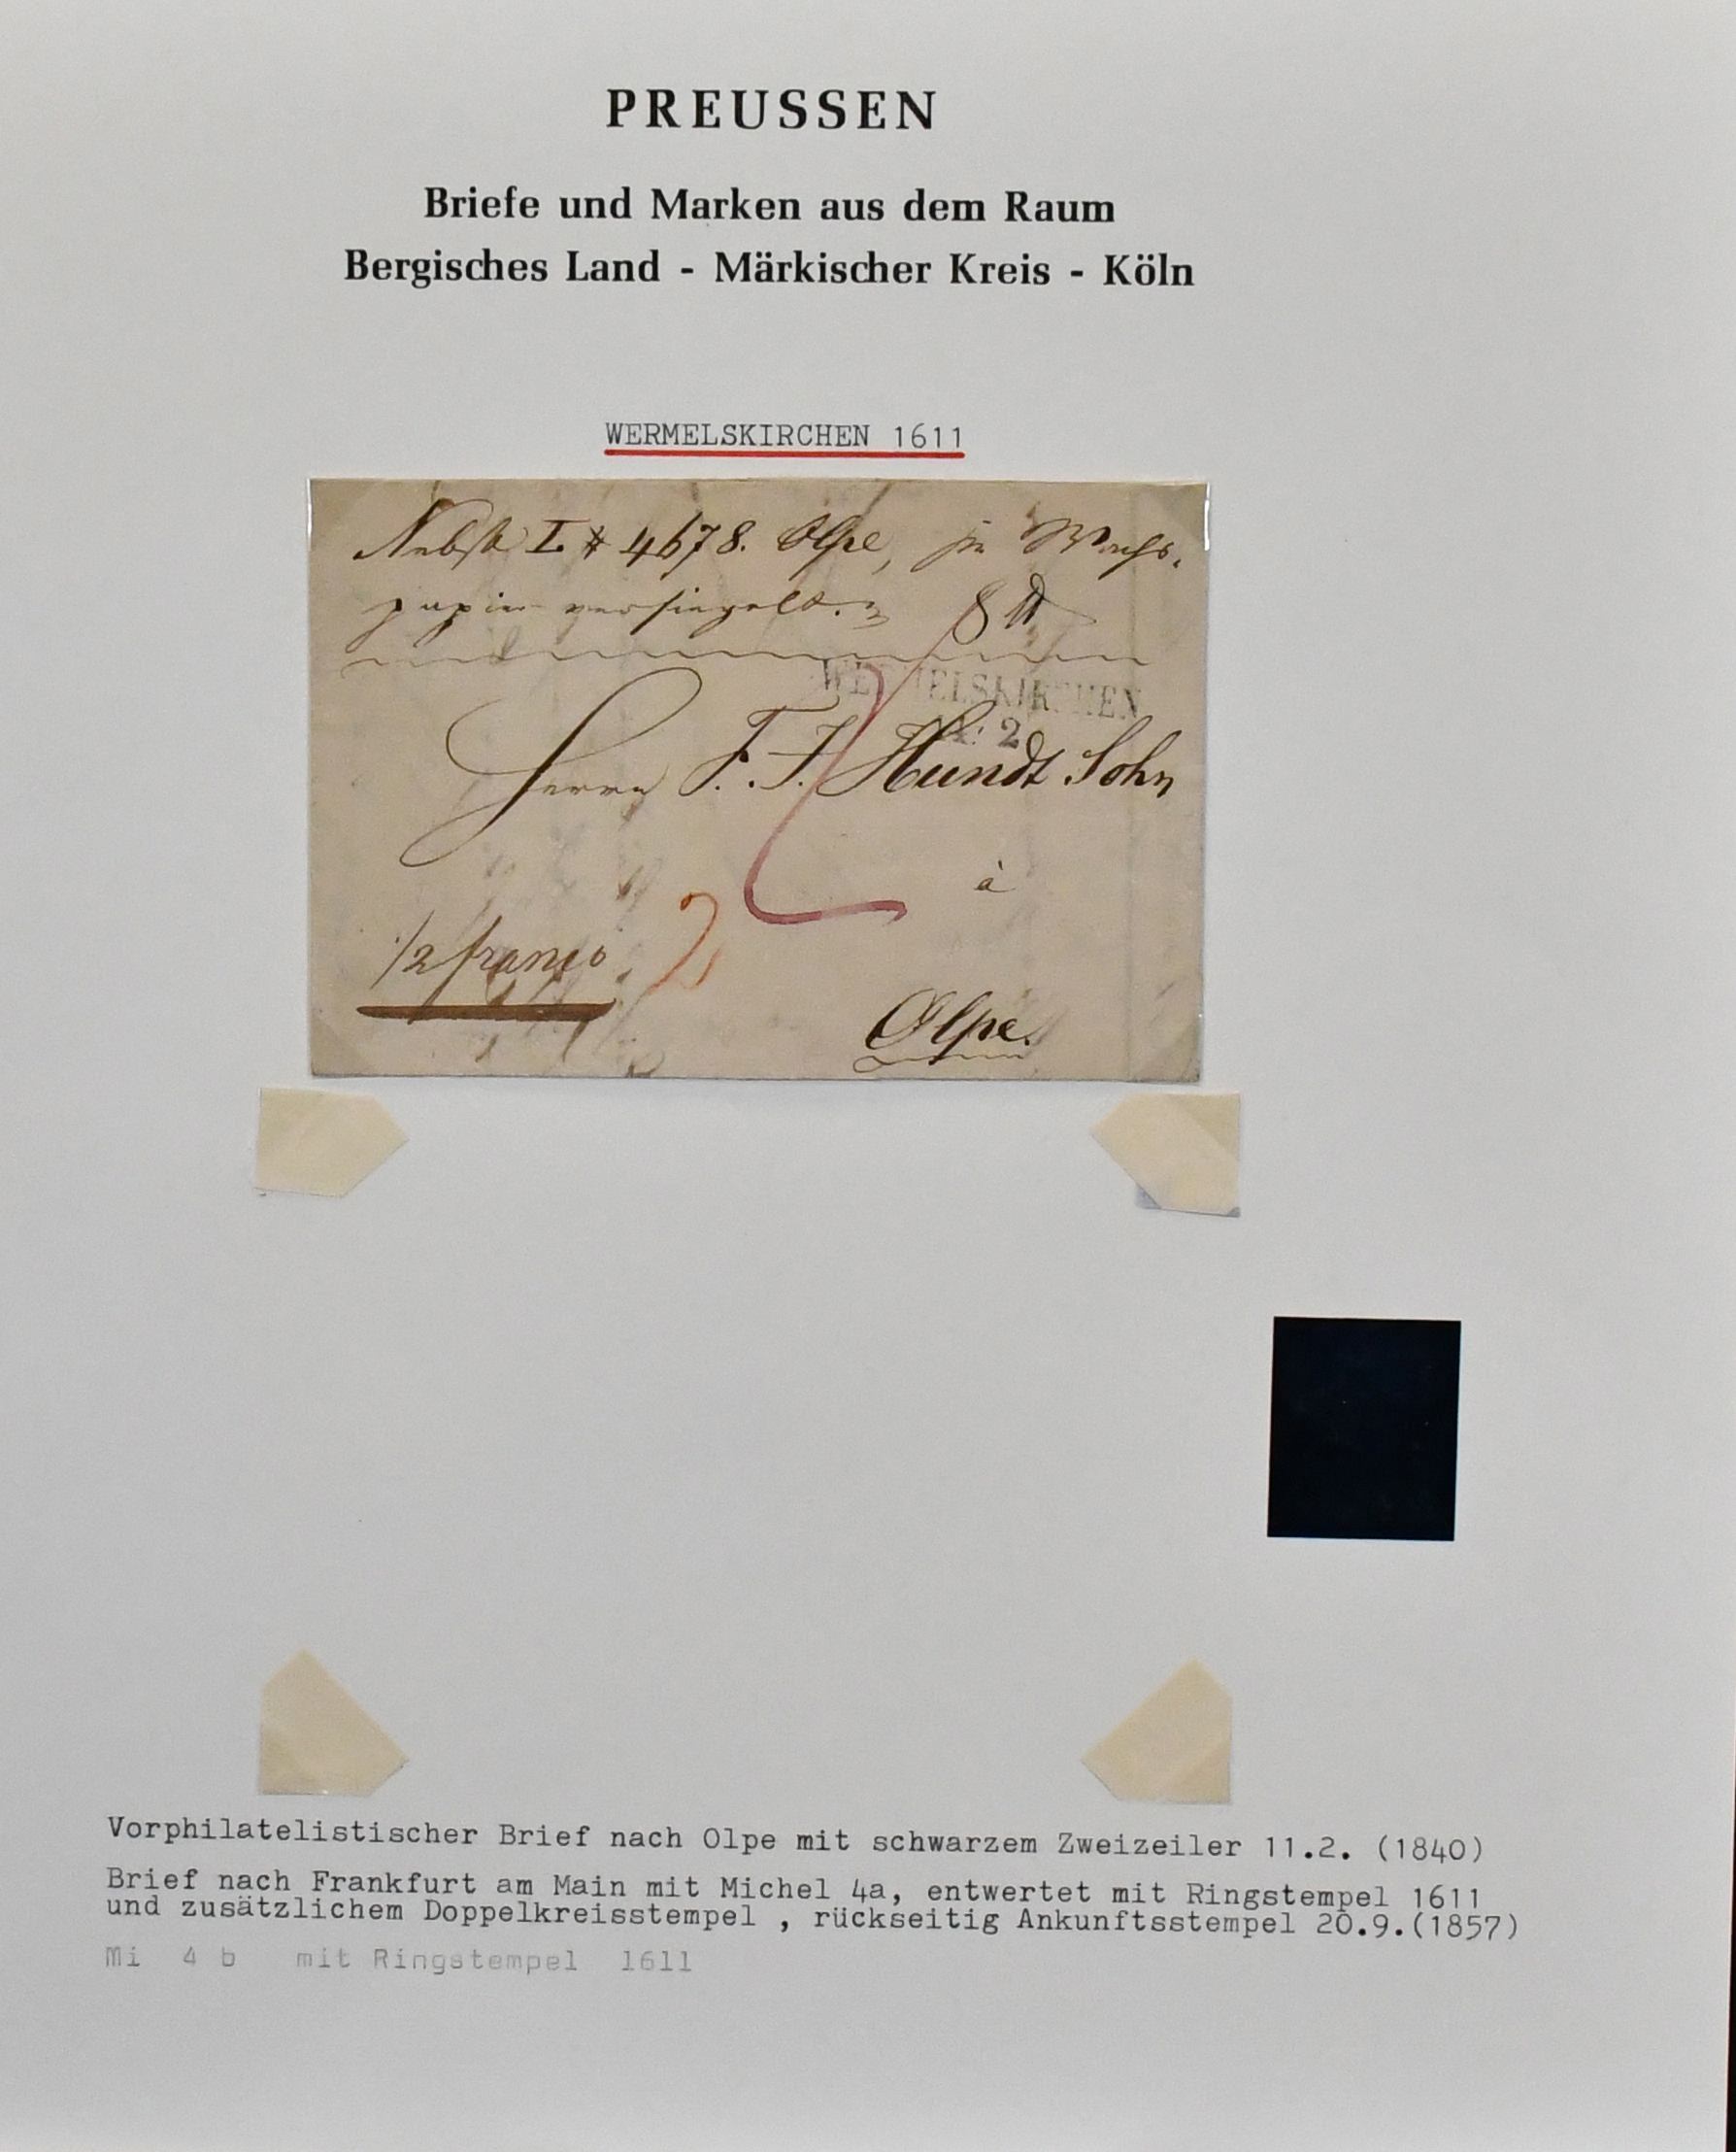 PREUSSEN
Briefe und Marken aus dem Raum
Bergisches Land - Märkischer Kreis - Köln
WERMELSKIRCHEN 1611
Nebst I # 4678. Olpe, in Wachs-
papier versiegelt. 8 ℔
WERMELSKIRCHEN
2
Herrn F. J. Hundt Sohn
à
1/2 franco 2
Olpe.
Vorphilatelistischer Brief nach Olpe mit schwarzem Zweizeiler 11.2. (1840)
Brief nach Frankfurt am Main mit Michel 4a, entwertet mit Ringstempel 1611
und zusätzlichem Doppelkreisstempel , rückseitig Ankunftsstempel 20.9.(1857)
Mi 4 b mit Ringstempel 1611